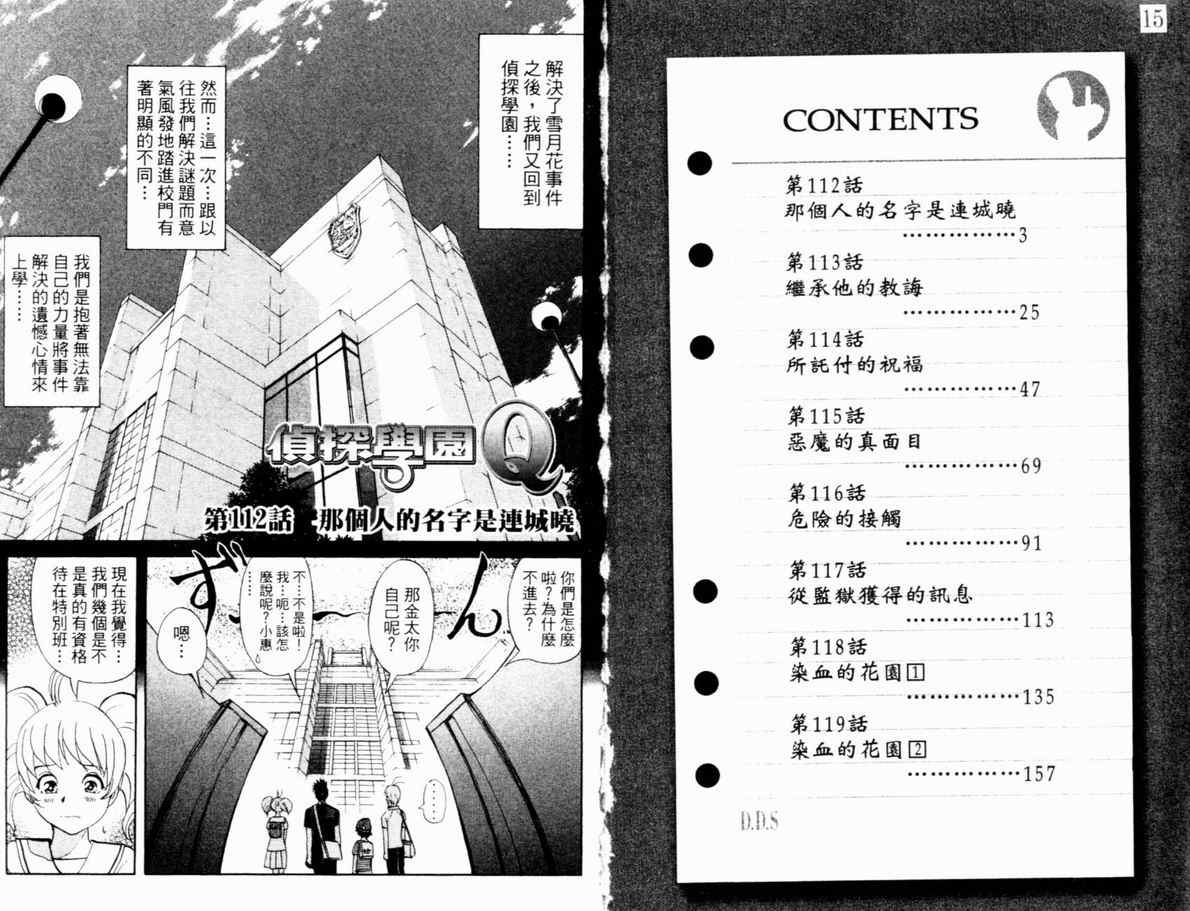 15
CONTENTS
第112話
那個人的名字是連城曉
……………3
第113話
繼承他的教誨
……………25
第114話
所託付的祝福
……………47
第115話
惡魔的真面目
……………69
第116話
危險的接觸
……………91
第117話
從監獄獲得的訊息
……………113
第118話
染血的花園1
……………135
第119話
染血的花園2
……………157
D.D.S
解決了雪月花事件
之後，我們又回到
偵探學園……
然而…這一次…跟以
往我們解決謎題而意
氣風發地踏進校門有
著明顯的不同…
我們是抱著無法靠
自己的力量將事件
解決的遺憾心情來
上學……
偵探學園Q
第112話 那個人的名字是連城曉
你們是怎麼
啦？為什麼
不進去？
ずーん
那金太你
自己呢？
不…不是啦！
我…呃…該怎
麼說呢？小惠
……
嗯…
……
現在我覺得…
我們幾個是不
是真的有資格
待在特別班…